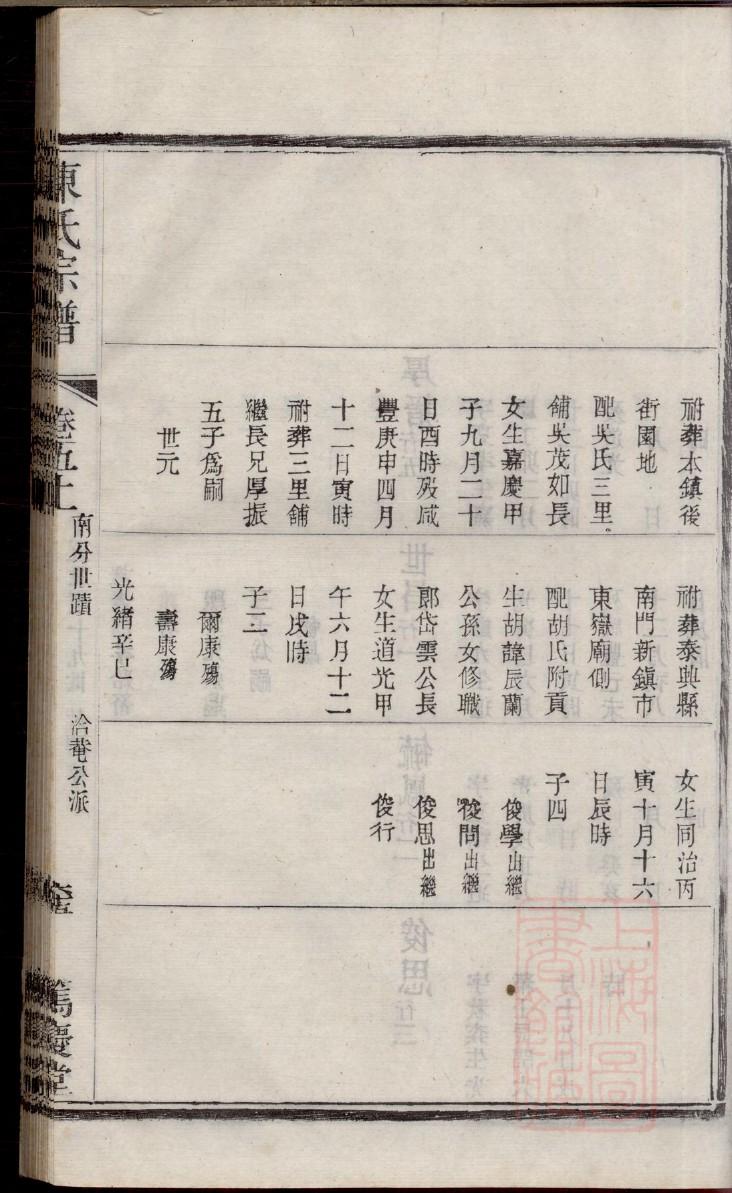 祔葬本鎭後
街園地
配吳氏三里
舖吳茂如長
女生嘉慶甲
子九月二十
日酉時殁咸
豐庚申四月
十二日寅時
祔葬三里舖
繼長兄厚振
五子爲嗣
世元
祔葬泰興縣
南門新鎭市
東嶽廟側
配胡氏附貢
生胡諱辰蘭
公孫女修職
郎岱雲公長
女生道光甲
午六月十二
日戌時
子二
爾康殤
壽康殤
光緒辛巳
女生同治丙
寅十月十六
日辰時
子四
俊學出繼
俊問出繼
俊思出繼
俊行
陳氏宗譜
卷五十
南分世蹟
洽菴公派
篤慶堂
上海圖書館藏